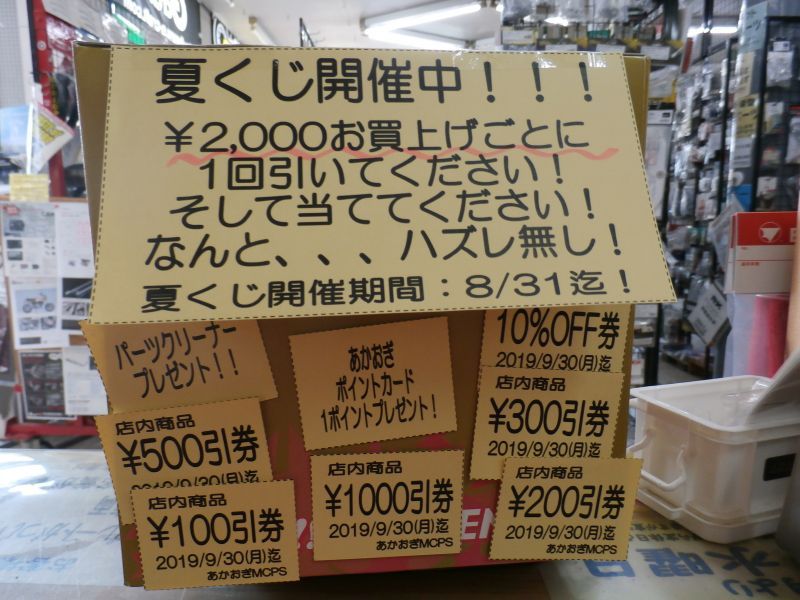 夏くじ開催中！！！
￥2,000お買上げごとに
1回引いてください！
そして当ててください！
なんと、、、ハズレ無し！
夏くじ開催期間：8/31迄！
パーツクリーナー
プレゼント！！
あかおぎ
ポイントカード
1ポイントプレゼント！
10%OFF券
2019/9/30(月)迄
店内商品
¥300引券
2019/9/30(月)迄
店内商品
¥500引券
2019/9/30(月)迄
店内商品
¥100引券
2019/9/30(月)迄
あかおぎMCPS
店内商品
¥1000引券
2019/9/30(月)迄
あかおぎMCPS
店内商品
¥200引券
2019/9/30(月)迄
あかおぎMCPS
水曜日